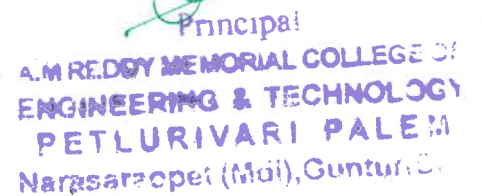 Principal
A.M REDDY MEMORIAL COLLEGE OF
ENGINEERING & TECHNOLOGY
PETLURIVARI PALEM
Narasaraopet (Mdl), Guntur